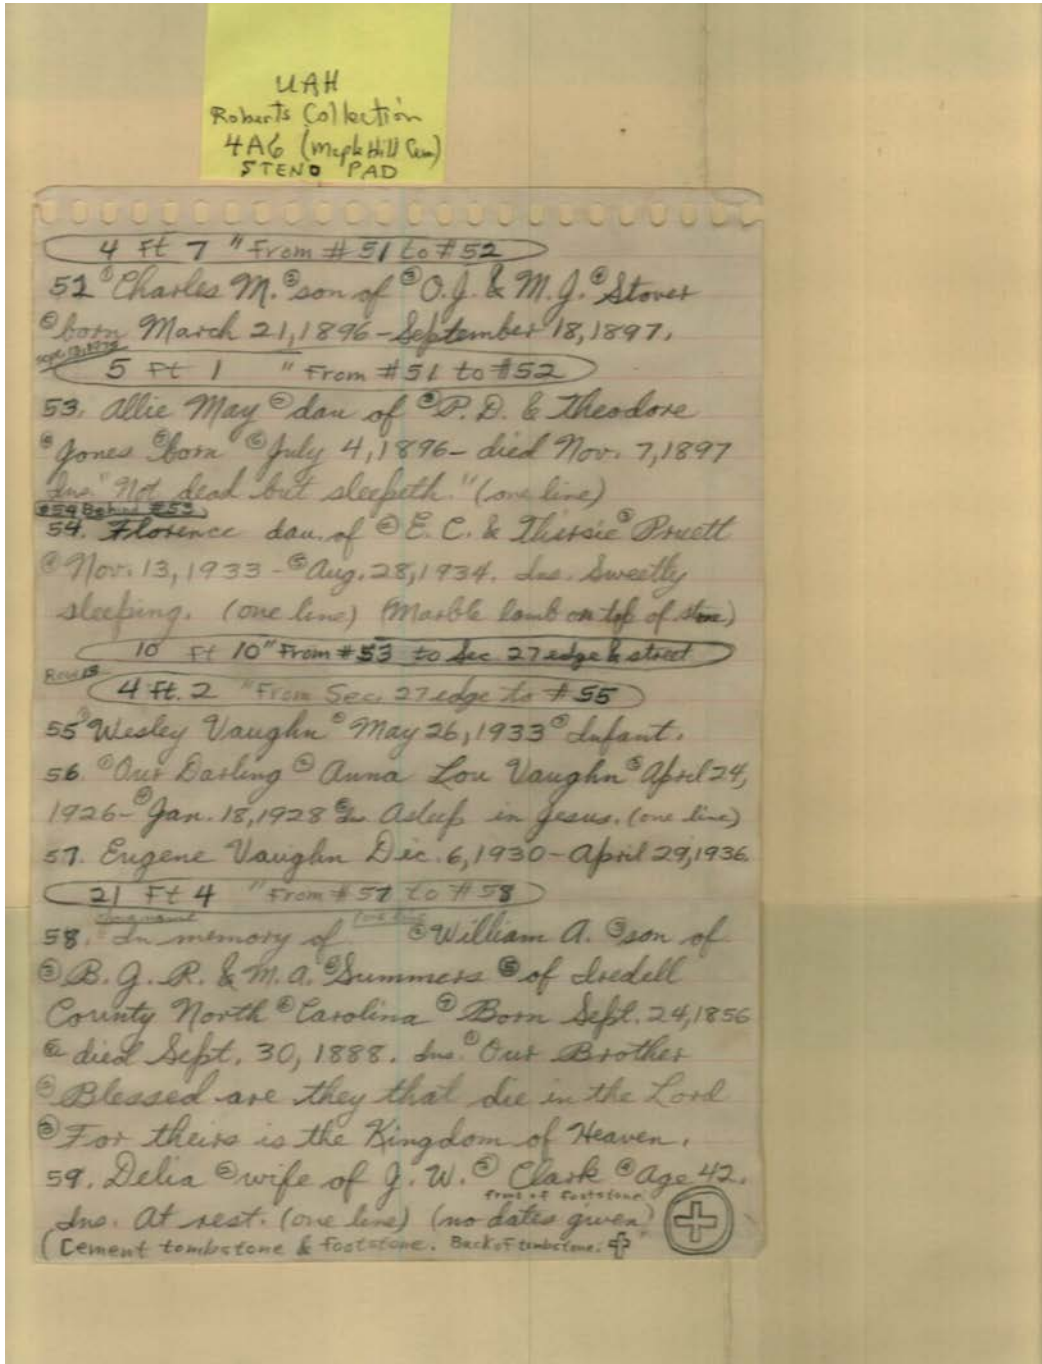 UAH
Roberts Collection
4A6 (Maple Hill Cem)
STENO PAD
4 Ft 7 " From #51 to #52
52 ① Charles M. ② son of ③ O.J. & M.J. ④ Stover
⑤ born March 21, 1896 – September 18, 1897.
Sept. 13, 1975
5 Ft 1 " From #51 to #52
53. Allie May ② dau of ③ P.D. & Theodore
④ Jones ⑤ born ⑥ July 4, 1896 – died Nov. 7, 1897
Ins. "Not dead but sleepeth." (one line)
#54 Behind #53
54. Florence dau. of ② E. C. & Thirsie ③ Pruett
④ Nov. 13, 1933 – ⑤ Aug. 28, 1934. Ins. Sweetly
sleeping. (one line) (Marble lamb on top of stone)
10 Ft 10" From #53 to Sec. 27 edge & street
Row 18
4 Ft. 2 " From Sec. 27 edge to #55
55 ① Wesley Vaughn ② May 26, 1933 ③ Infant.
56. ① Our Darling ② Anna Lou Vaughn ③ April 24,
1926 – ④ Jan. 18, 1928 ⑤ Ins. Asleep in Jesus. (one line)
57. Eugene Vaughn Dec. 6, 1930 – April 29, 1936.
21 Ft 4 " From #57 to #58
(one line)
58. In memory of ② William A. ③ son of
③ B. G. R. & M. A. ④ Summers ⑤ of Iredell
County North ⑥ Carolina ⑦ Born Sept. 24, 1856
⑧ died Sept. 30, 1888. Ins. ① Our Brother
② Blessed are they that die in the Lord
③ For theirs is the Kingdom of Heaven.
59. Delia ② wife of J. W. ③ Clark ④ Age 42.
front of footstone
Ins. At rest. (one line) (no dates given)
(Cement tombstone & footstone. Back of tombstone: